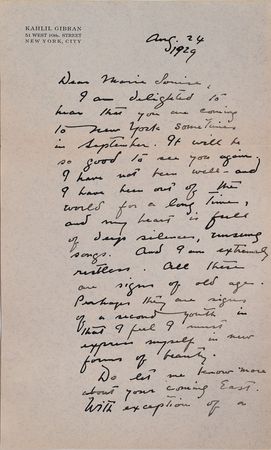 KAHLIL GIBRAN
51 WEST 10th. STREET
NEW YORK, CITY
Aug. 24
1929
Dear Marie Louise,
I am delighted to
hear that you are coming
to New York sometime
in September. It will be
so good to see you again.
I have not been well - and
I have been out of the
world for a long time,
and my heart is full
of deep silences, unsung
songs. And I am extremely
restless. All these
are signs of old age.
Perhaps they are signs
of a second youth in
that I feel I must
express myself in new
forms of beauty.
Do let me know more
about your coming East.
With exception of a